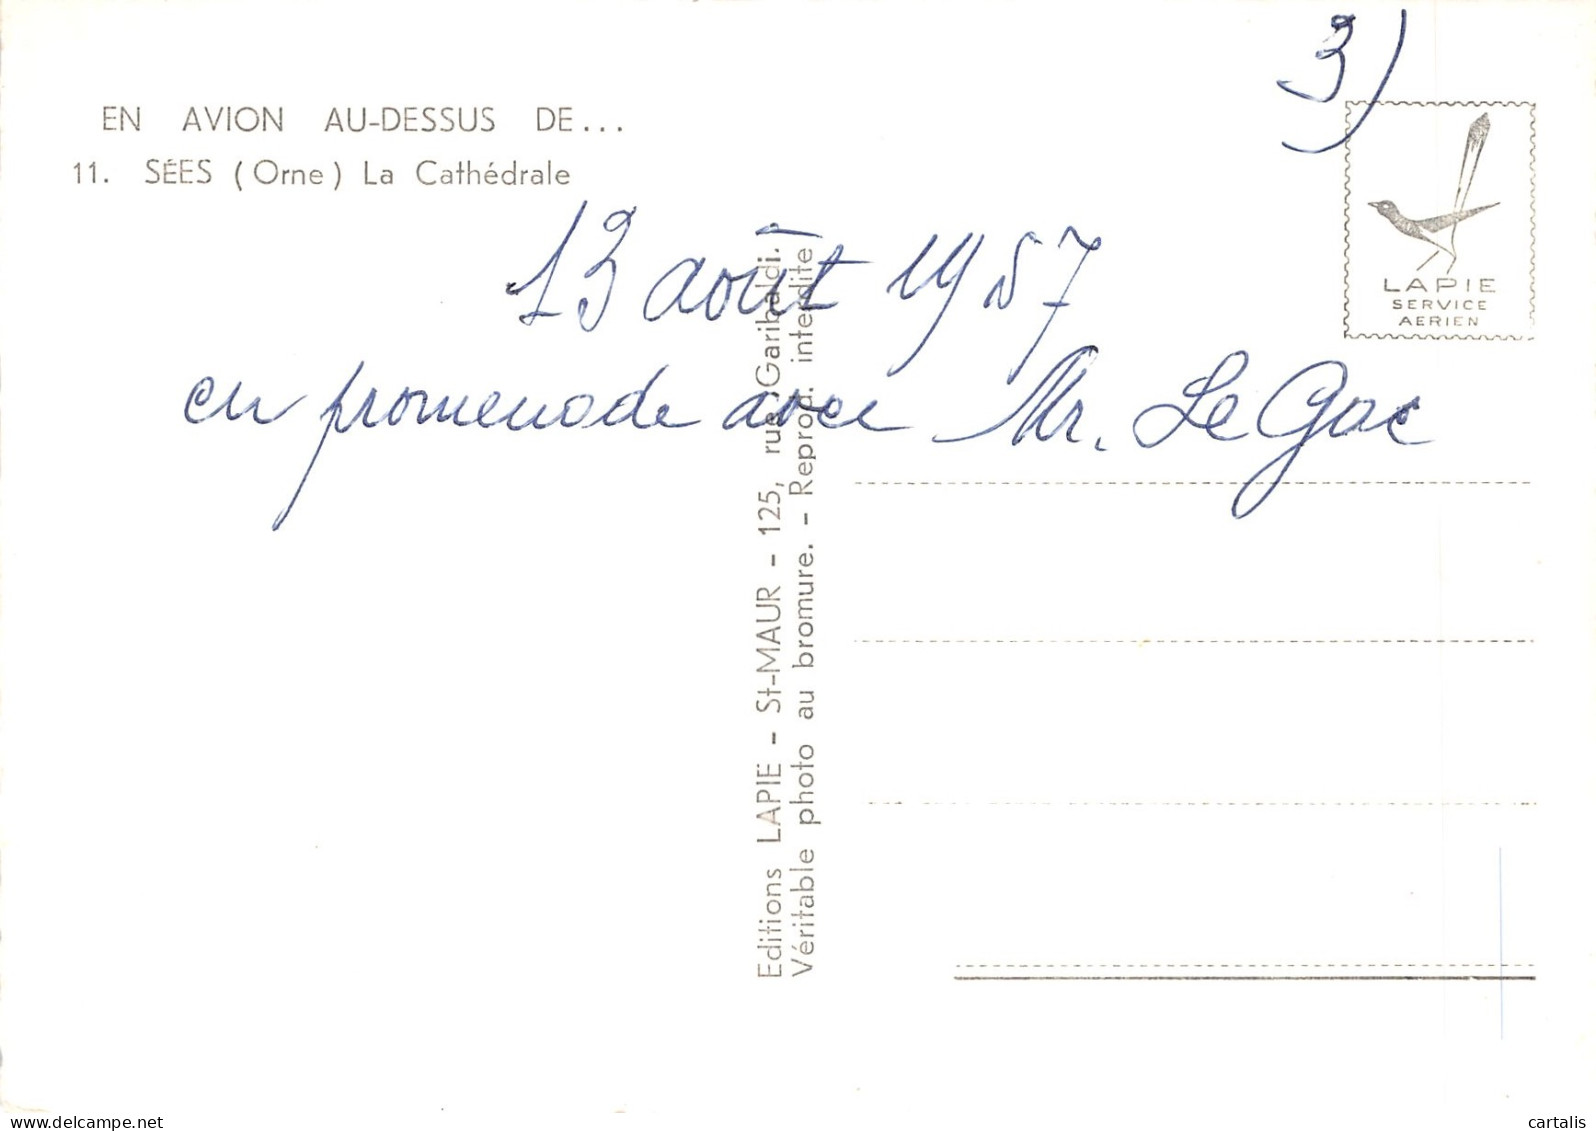 3)
EN AVION AU-DESSUS DE...
11. SÉES (Orne) La Cathédrale
LAPIE
SERVICE
AERIEN
13 août 1957
en promenade avec Mr. Le Gac
Editions LAPIE - St-MAUR - 125, rue Garibaldi.
Véritable photo au bromure. - Reprod. interdite
delcampe.net
cartalis